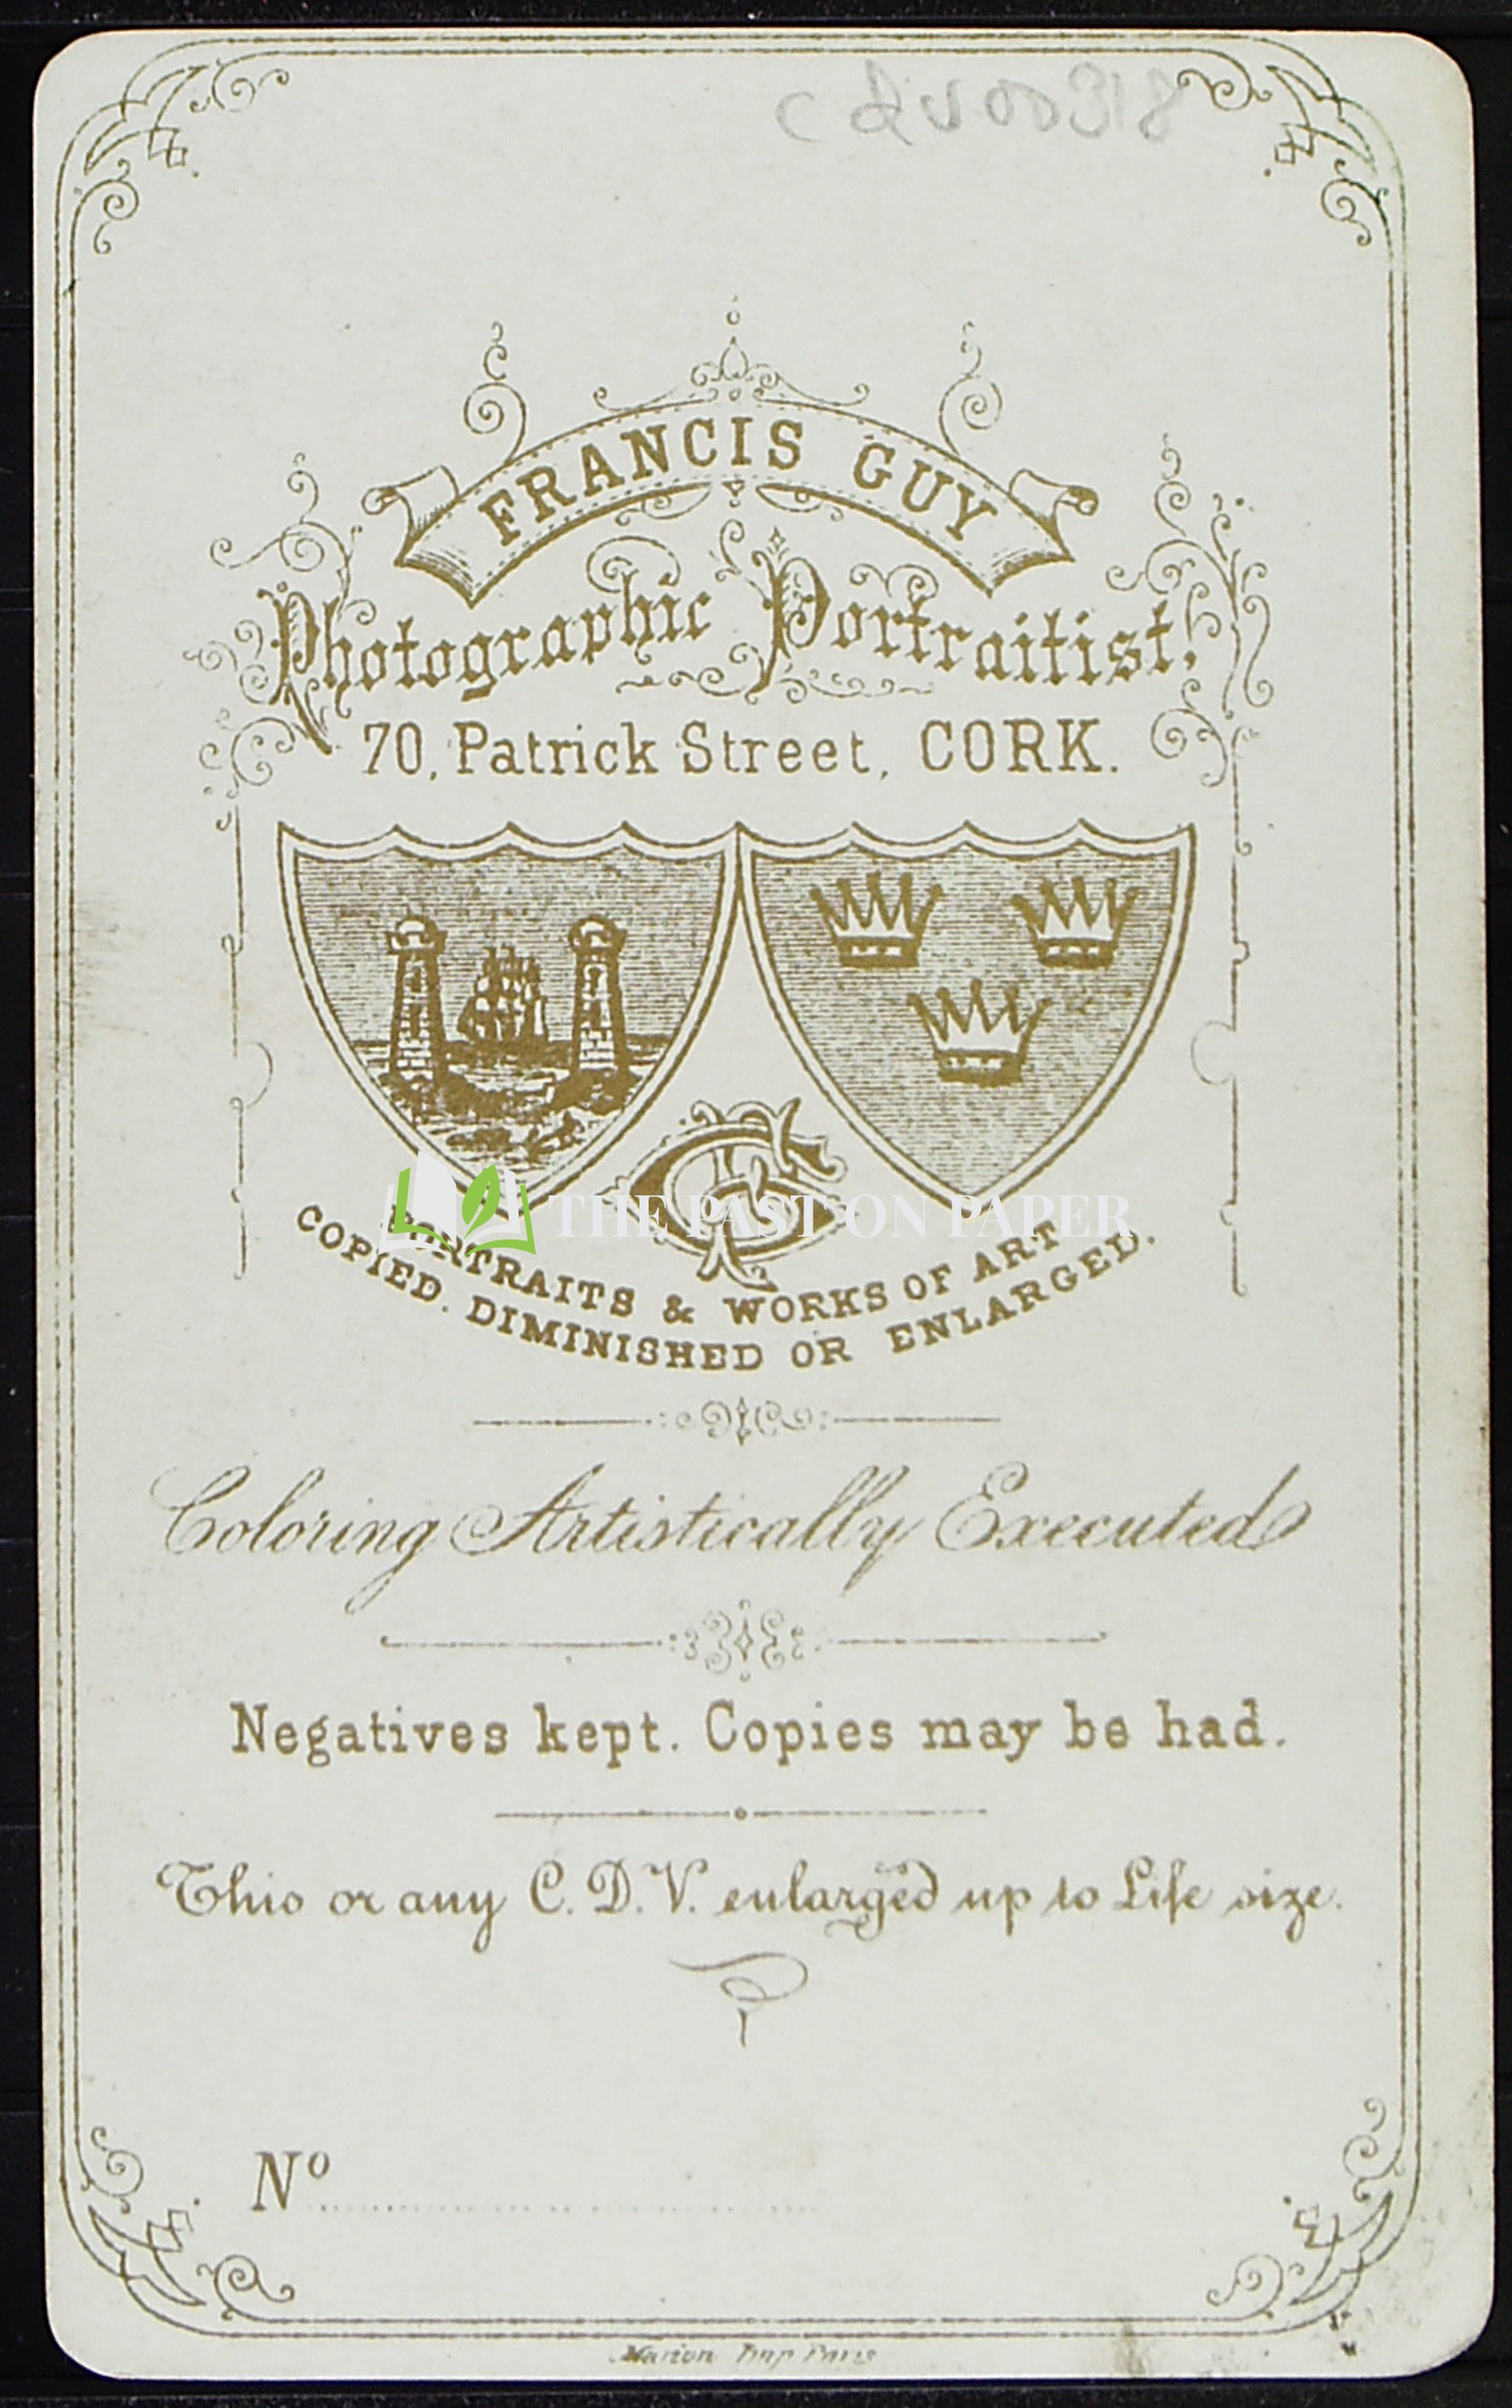 cdv00318
FRANCIS GUY
Photographic Portraitist,
70, Patrick Street, CORK.
THE PAST ON PAPER
PORTRAITS & WORKS OF ART
COPIED. DIMINISHED OR ENLARGED.
Coloring Artistically Executed
Negatives kept. Copies may be had.
This or any C. D. V. enlarged up to Life size.
Nº
Marion Imp Paris